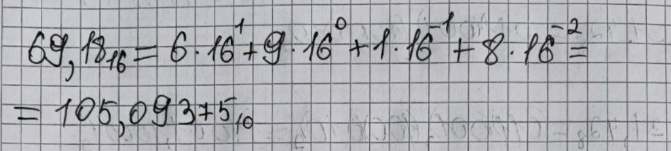 69,18₁₆ = 6·16¹+9·16⁰+1·16⁻¹+8·16⁻²=
= 105,09375₁₀